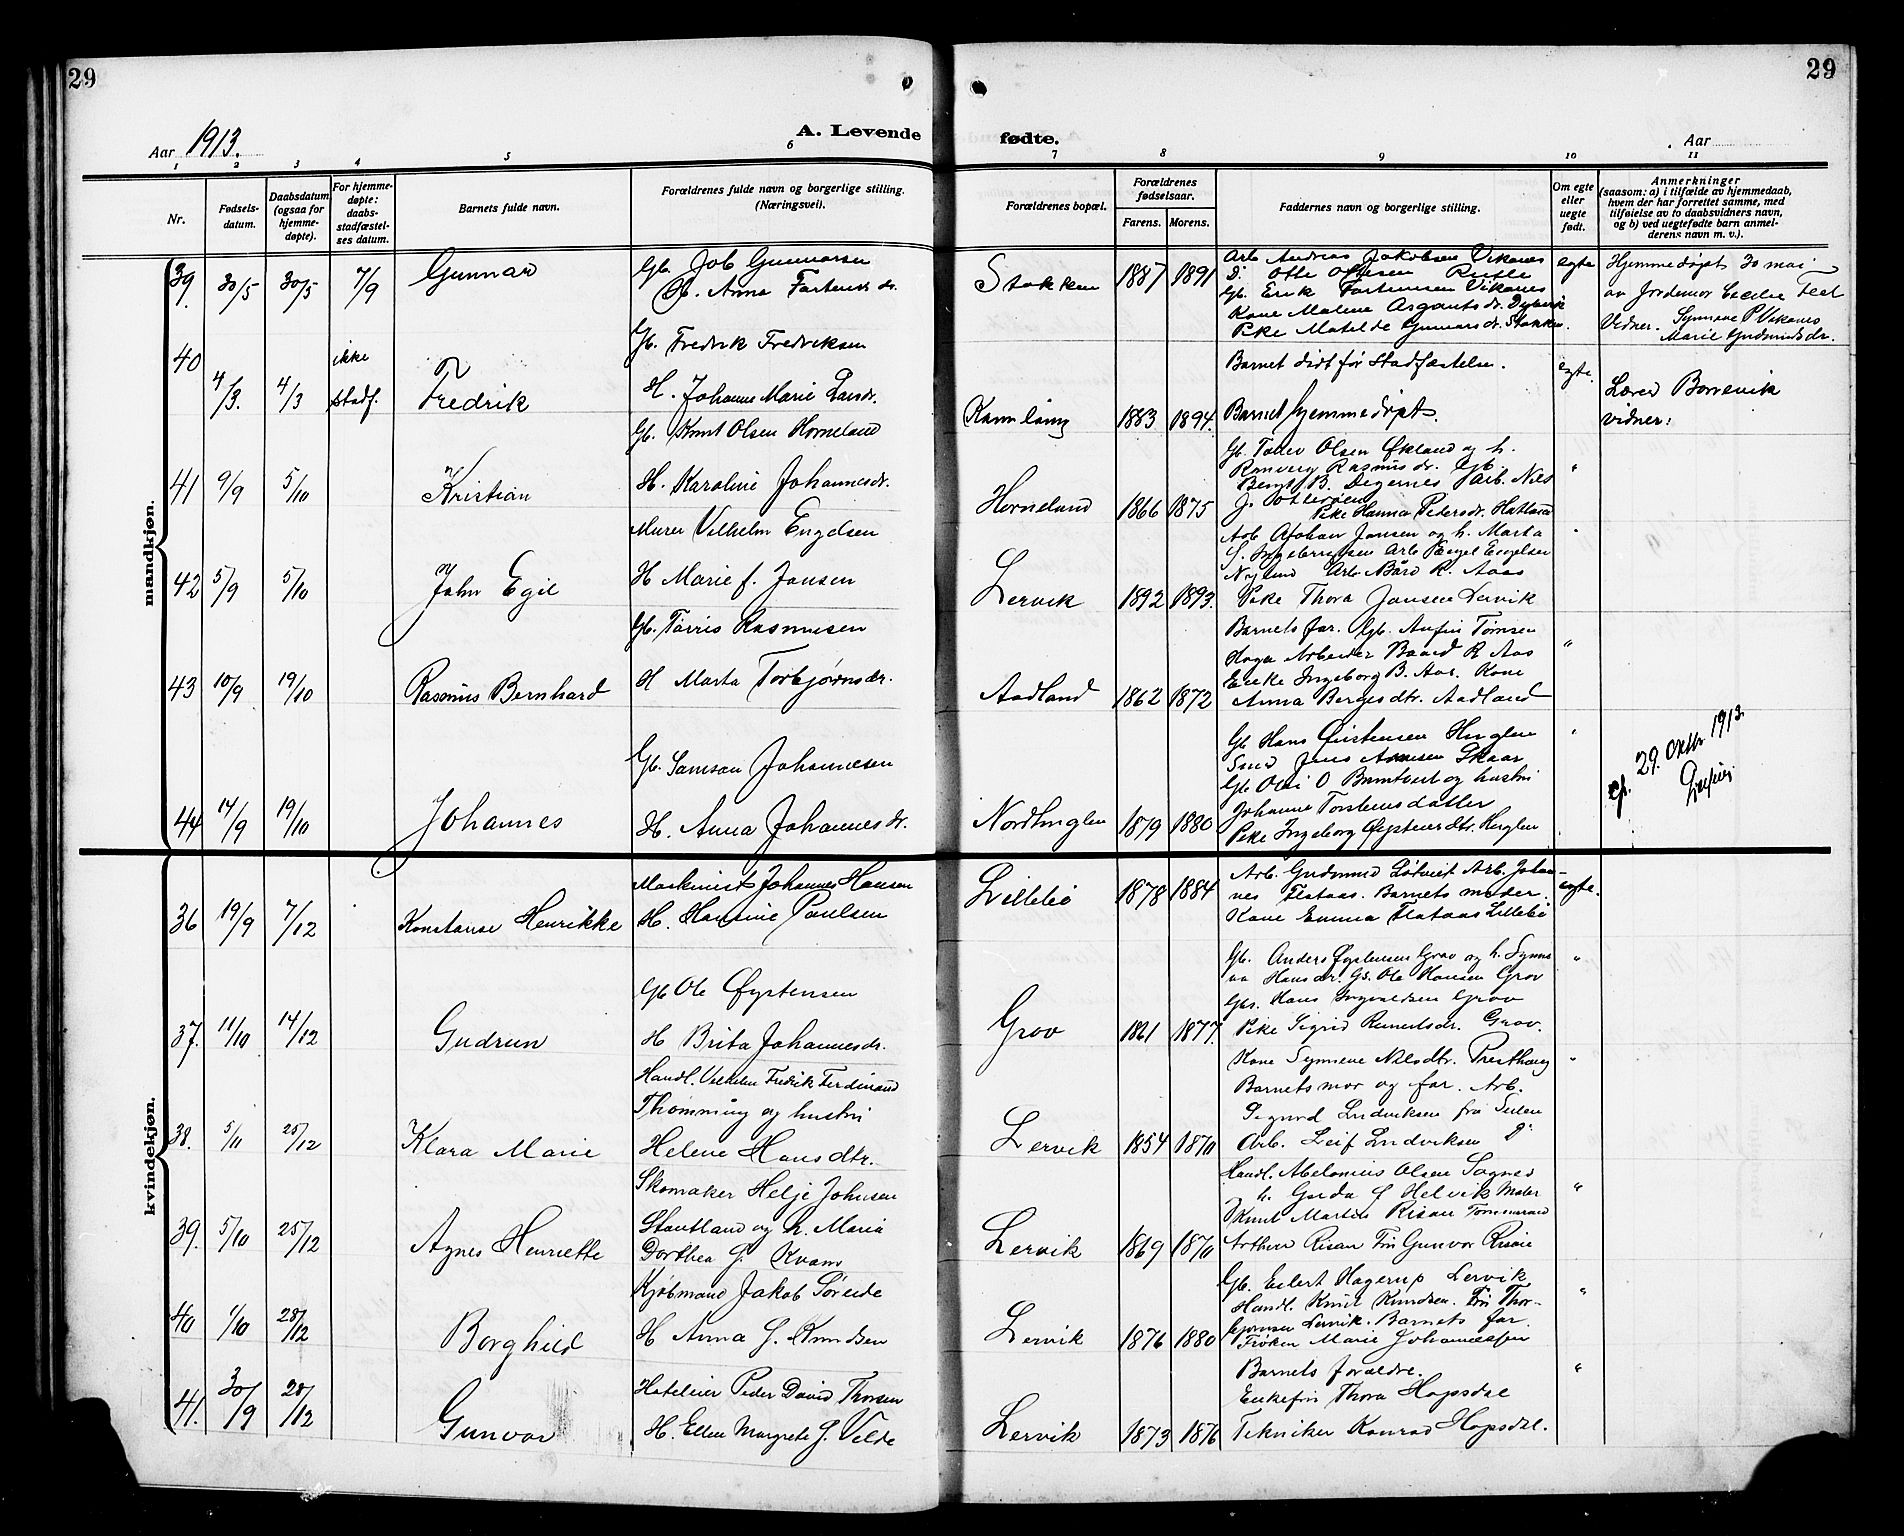 29
29
Aar 1913.
A. Levende
fødte.
Aar
1 2 3 4 5 6 7 8 9 10 11
Nr.
Fødsels-
datum.
Daabsdatum
(ogsaa for
hjemme-
døpte).
For hjemme-
døpte:
daabs-
stadfæstel-
ses datum.
Barnets fulde navn.
Forældrenes fulde navn og borgerlige stilling.
(Næringsvei).
Forældrenes bopæl.
Forældrenes
fødselsaar.
Farens. Morens.
Faddernes navn og borgerlige stilling.
Om egte
eller
uegte
født.
Anmerkninger
(saasom: a) i tilfælde av hjemmedaab,
hvem der har forrettet samme, med
tilføielse av to daabsvidners navn,
og b) ved uegtefødte barn anmel-
derens navn m. v.).
mandkjøn.
39. 30/5 30/5 7/9 Gunnar
Gb. Job Gunnarsen
H. Anna Fartensdr.
Stokken 1887 1891
Arb Andreas Jakobsen Vikanes
Gb. Erik Fartensen Vikanes
Kone Malene
Pike Matilde Gunnarsdr. Stokken.
egte
Hjemmedøpt 30 mai
av Jordemor Cecilie
Vidner. Synneve P Vikanes
Marie Gudmundsdr.
40 4/3. 4/3 ikke
stadf.
Fredrik
Gb. Fredrik Fredriksen
H. Johanne Marie Larsdr.
1883 1894.
Barnet dødt før Stadfæstelse.
Barnet hjemmedøpt.
egte.
Lærer Borrevik
vidner:
41 9/9 5/10 Kristian
Gb. Knut Olsen Horneland
H. Karoline Johannesdr.
Horneland 1866 1875
Gb. Tollev Olsen Økland og h.
Rasmusdr. Gb.
Bengt B. Digernes Arb. Nils
J.
Pike Hanna Pedersdr.
"
42 5/9 5/10 John Egil
Murer Vilhelm Engelsen
H Marie f. Jansen
Lervik 1892 1893.
Arb Johan Jansen og h. Marta
Arb Engelsen
Arb. Bård R. Aaas
Pike Thora Jansen Lervik
43 10/9 19/10 Rasmus Bernhard
Gb. Tørris Rasmusen
H Marta Torbjørnsdr.
Aadland 1862 1872
Barnets far. Gb. Anfin Tømsen
Haga Arbeider Baard R Aas
Enke Ingeborg B. Aas. Kone
Anna Bergesdtr. Aadland
"
44 14/9 19/10 Johannes
Gb. Samson Johannesen
H. Anna Johannesdr.
Nordhuglen 1879 1880
Gb Hans Øistensen Huglen
Smed Jens Skaar
Gb Ole O og hustru
Johanne Torstensdatter
Pike Ingeborg Øystensdtr. Huglen
29. Oktbr 1913.
kvindekjøn.
36 19/9 7/12 Konstanse Henrikke
Maskinist Johannes Hansen
H. Hansine Paulsen
Lillebø 1878 1884
Arb. Gudmund Løtveit Arb. Johan-
nes Flataas. Barnets moder.
Kone Emma Flataas Lillebø
egte.
37. 11/10 14/12 Gudrun
Gb Ole Øystensen
H Brita Johannesdr.
Grov 1861 1877.
Gb. Anders Øystensen Grov og h. Synne
va Hansdr. Gs. Ole Hansen Grov
Gbs. Hans Ingvaldsen Grov
Pike Sigrid Reinertsdr. Grov.
"
38. 5/11 25/12 Klara Marie
Handl. Vilhelm Fredrik Ferdinand
Thomming og hustru
Helene Hansdtr.
Lervik 1854 1870
Kone Synneve Nilsdtr. Presthaug
Barnets mor og far. Arb.
Sigurd Ludviksen fra
Arb. Leif Ludviksen D°
"
39. 5/10 25/12 Agnes Henriette
Skomaker Helje Johnsen
Stautland og h. Maria
Dorthea J. Kvam
Lervik 1869 1870
Handl. Abelonius Olsen Sagnes
h. Gerda J Helvik Maler
Knut Martin Risan Tømmermand
Arthur Risan Frk Gunvor Risan
"
40 1/10 28/12 Borghild
Kjøbmand Jakob Søreide
H Anna J. Knudsen
Lervik 1876 1880
Gb. Eilert Hagerup Lervik
Handl. Knut Knudsen. Fru Thor-
bjørnsen Lervik. Barnets far.
Frøken Marie Johannessen
"
41. 30/9 28/12 Gunvor
Hotelleier Peder David Thorsen
H. Ellen Margrete J. Velde
Lervik 1873 1876
Barnets forældre.
Enkefru Thora Hopsdal
Tekniker Konrad Hopsdal.
"